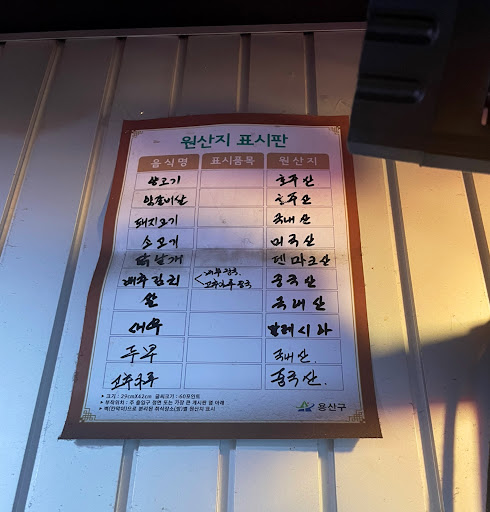 원산지 표시판
음식명 표시품목 원산지
양고기 호주산
양갈비살 호주산
돼지고기 국내산
소고기 미국산
닭날개 덴마크산
배추김치 배추 중국, 중국산
고추가루 중국
쌀 국내산
새우 말레시아
두부 국내산.
고추가루 중국산.
▸ 크기 : 29cm X 42cm 글씨크기 : 60포인트
▸ 부착위치 : 주 출입구 정면 또는 가장 큰 게시판 옆·아래
▸ 벽(칸막이)으로 분리된 취식장소(방)별 원산지 표시
용산구